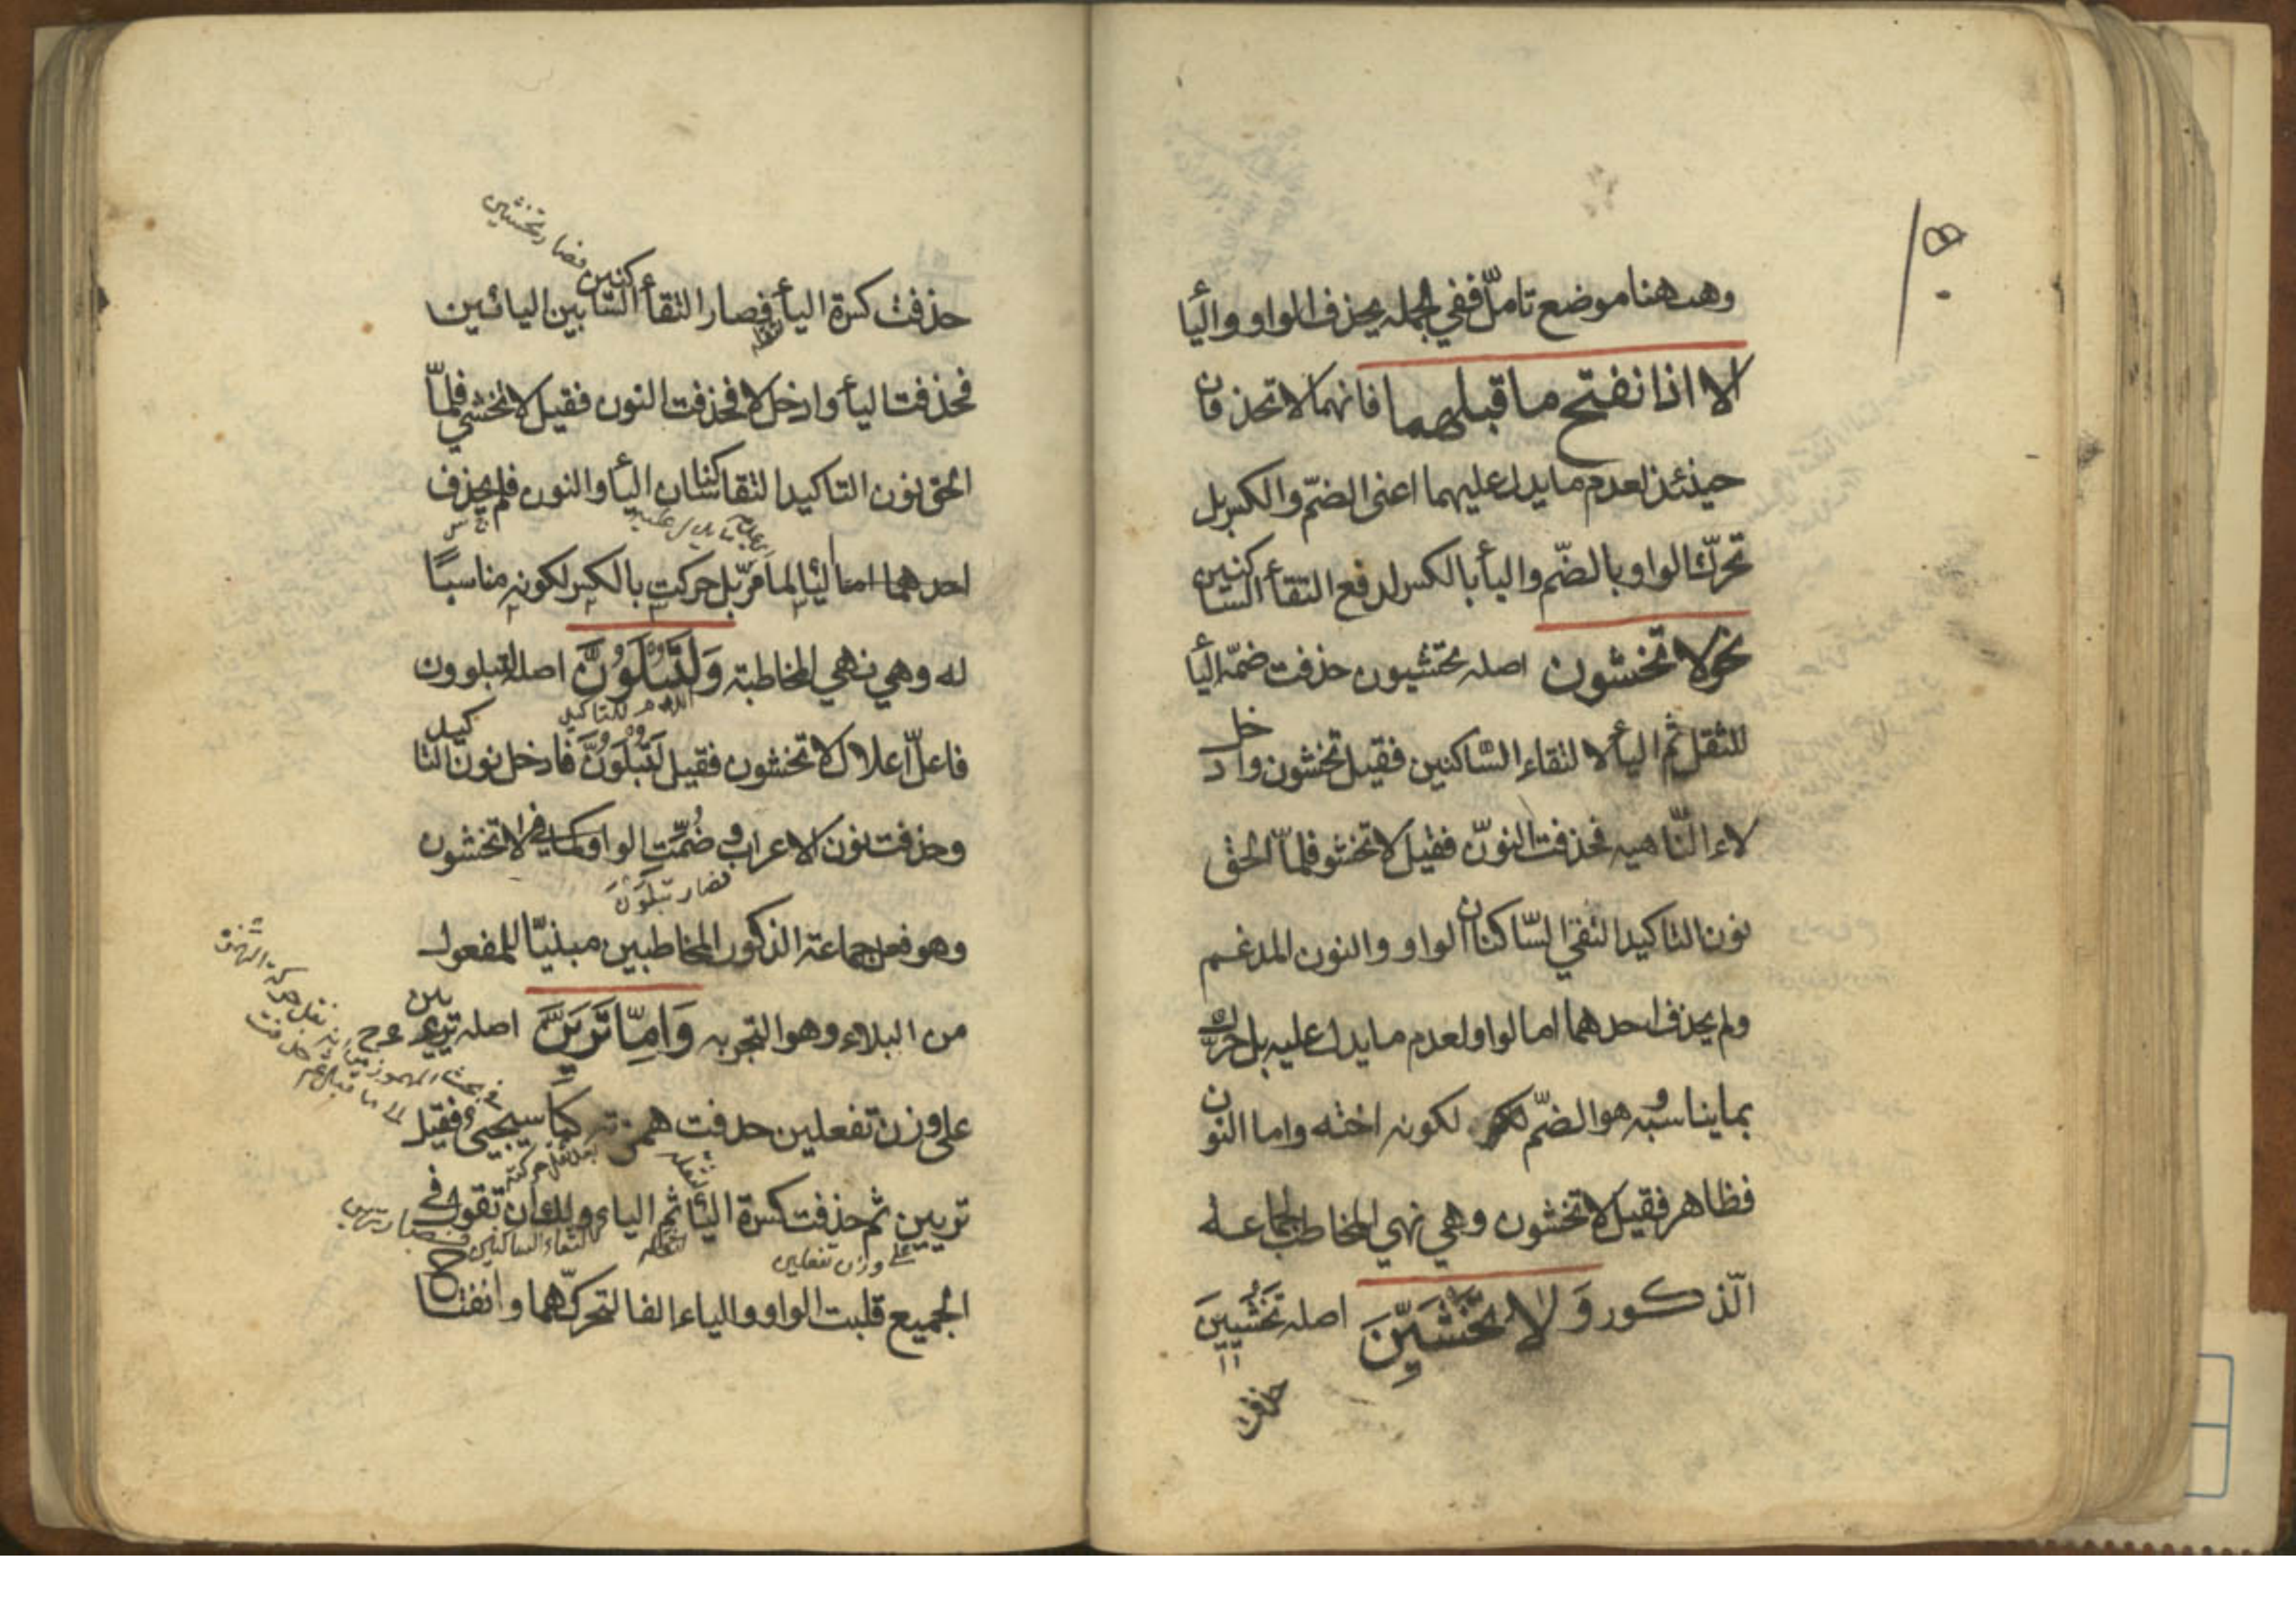 وههنا موضع تامّل ففي الجمله يحذف الواو والیأ
الا اذا نفتح ما قبلهما فانهما لا تحذفان
حينئذ لعدم ما يدل عليهما اعنى الضمّ والكسر بل
تحرّك الواو بالضّم واليأ بالكسر لدفع التقأ السّاكنين
نحو لا تخشون اصله تخشيون حذفت ضمّة اليأ
للثقل ثم اليأ لالتقاء السّاكنين فقيل تخشون وادخل
لاء النّاهيه فحذفت النوّن فقيل لا تخشو فلمّا الحق
نون التاكيد التقي السّاكنان الواو والنون المدغم
ولم يحذف احدهما اما الواو لعدم ما يدل عليه بل حرّك
بما يناسبه وهو الضمّ لكونه اخته واما النون
فظاهر فقيل لا تخشون وهي نهي المخاطب لجماعه
الّذكور وَلا تَخْشَيِنَّ اصله تَخْشَيِينَ
حذفت
فصار تخشيين
حذفت كسرة اليأ فصار التقأ السّاكنين بين اليائين
فحذفت اليأ وادخل لا فحذفت النون فقيل لا تخشي فلمّا
الحق نون التاكيد التقا ساكنان اليأ والنون فلم يحذف
احدهما اما اليأ لما مرّ بل حركت بالكسر لكونه مناسبًا
له وهي نهي المخاطبة وَلَتُبْلَوُنَّ اصله لتبلوون
اللام للتاكيد
فاعلّ اعلال لا تخشون فقيل لَتُبْلَوُنَّ فادخل نون التاكيد
وحذفت نون الاعراب وضُمّت الواو كما في لا تخشون
فصار تبلوُنَّ
وهو فعل جماعة الذكور المخاطبين مبنيّا للمفعول
من البلاء وهو التجربه وَاِمّا تَرَيِنَّ اصله
على وزن تفعلين حدفت همزته كما سيجيء فقيل
بعد نقل حركته
تريين ثم حذفت كسرة اليأ ثم الياء ولك ان تقول في
على وزن تفعلين
لالتقاء الساكنين فصار ترين
الجميع قلبت الواو والياء الفا لتحرّكهما وانفتاح